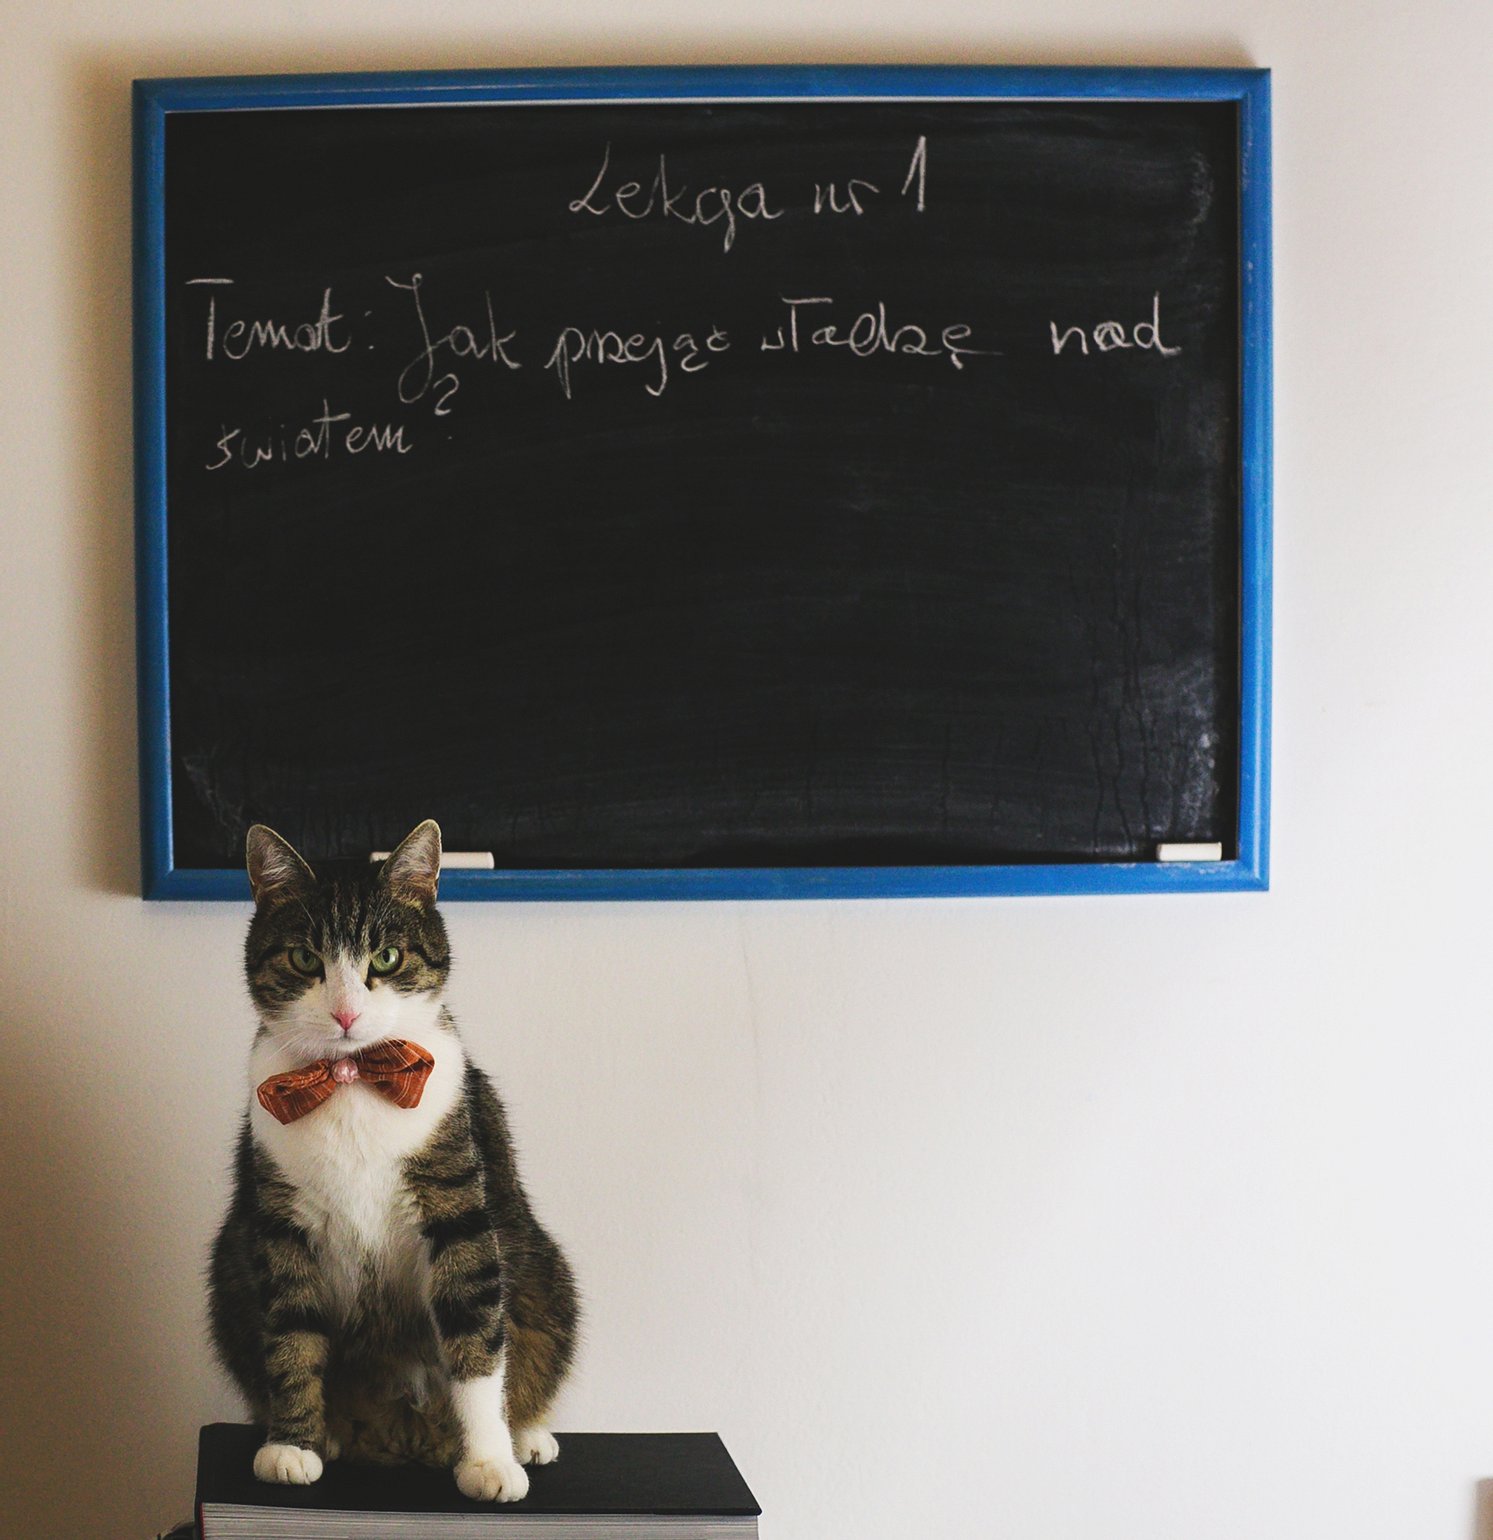 Lekcja nr 1
Temat: Jak przejąć władzę nad
światem?